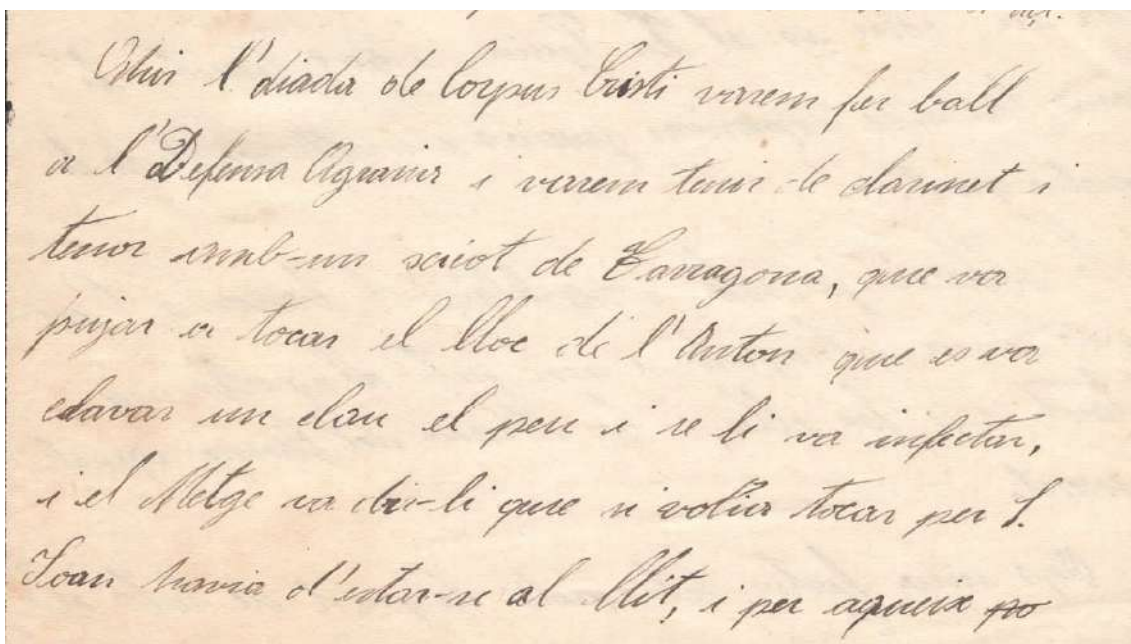 Ahir l'diada de Corpus Cristi varem fer ball
a l'Defensa Agraria i varem tenir de clarinet i
tenor amb-un xicot de Tarragona, que va
pujar a tocar el lloc de l'Anton que es va
clavar un clau el peu i se li va infectar,
i el Metge va dir-li que si volia tocar per S.
Joan havia d'estar-se al llit, i per aqueix po